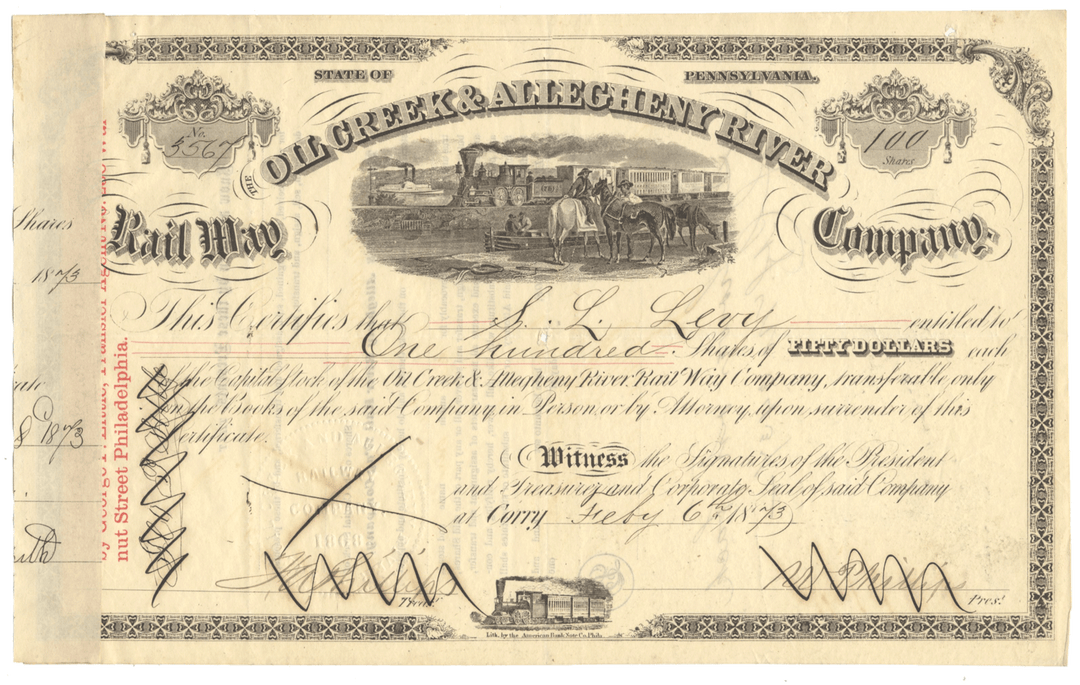 STATE OF PENNSYLVANIA.
No. 5567
100
Shares
THE OIL CREEK & ALLEGHENY RIVER
Rail Way Company.
Shares
1873
This Certifies that S. L. Levy entitled to
One hundred Shares of FIFTY DOLLARS each
of the Capital Stock of the Oil Creek & Allegheny River Rail Way Company, transferable only
on the Books of the said Company in Person or by Attorney upon surrender of this
Certificate.
1873
Witness the Signatures of the President
and Treasurer and Corporate Seal of said Company
at Corry Feby 6th 1873
Treas.
Phillips Pres.
Lith. by the American Bank Note Co. Phila.
nut Street Philadelphia.